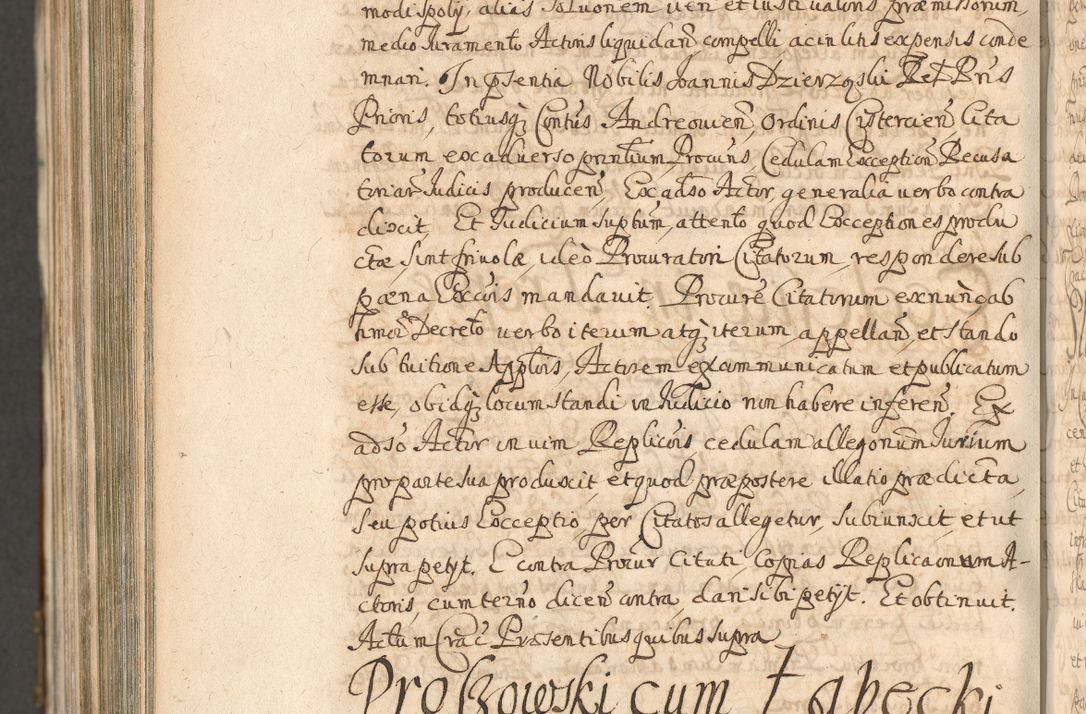 modi spolij, alias solutionem veri et iusti valoris præmissorum,
medio Iuramento Actoris liquidan̄ compelli ac in litis expensis conde
mnari. In p̄sentia Nobilis Joannis Dzierzqski Pr̄is
Prioris, totiusq̄ Con̄tus Andreouien̄, Ordinis Cystercien̄ Cita
torum ex aduerso prin̄lium Procur̄is Cedulam Exception̄ Recusa
toriar̄ Iudicis producen̄, Ex adso Actor generalia verbo contra
dixit, Et Iudicium suptum, attento quod Exceptiones produ
ctæ, sint friuolæ, ideò Procuratori Citatorum, respondere sub
pæna Excōis mandauit. Procure Citatorum ex nunc ab
hmōi Decreto verbo iterum atq̄ iterum, appellan̄, et stando
sub tuitione Appl̄ois, Actorem excommunicatum et publicatum
esse, ob idq̄ locum standi in Iudicio non habere inferen̄. Ex
adso Actor in vim Replicōis, cedulam allegōnum Iurium
pro parte sua produxit, et quod præpostere illatio prædicta,
seu potius Exceptio, per Citatos allegetur, subiunxit, et ut
supra petyt. E contra Procur Citati, Copias Replicaonum A-
ctoris, cum termo dicen̄ contra, dari sibi petijt. Et obtinuit.
Actum Crac Præsentibus quibus supra
Proszowski cum Łapecki